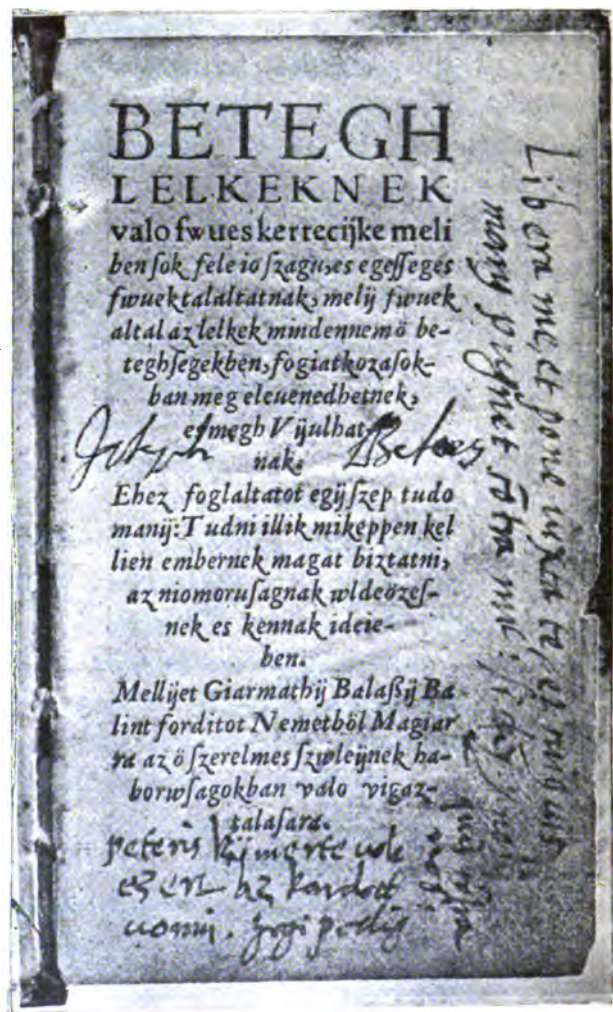 BETEGH
LELKEKNEK
valo fwues kertecijke meli
ben ſok fele io ſzagu, es egeſſeges
fwuek talaltatnak, melij fwuek
altal az lelkek mindennemö be-
teghſegekben, fogiatkozaſok-
ban meg eleuenedhetnek,
eſmegh Vijulhat
nak.
Ehez foglaltatot egij ſzep tudo
manij: Tudni illik mikeppen kel
lien embernek magat biztatni,
az niomoruſagnak wldeözeſ-
nek es kennak ideie-
ben.
Mellijet Giarmathij Balaßij Ba
lint forditot Nemetböl Magiar
ra az ö ſzerelmes ſzwleijnek ha-
borwſagokban valo vigaz-
talaſara.
ez ert az kardot
uonni.
Libera me et pone iuxta te et